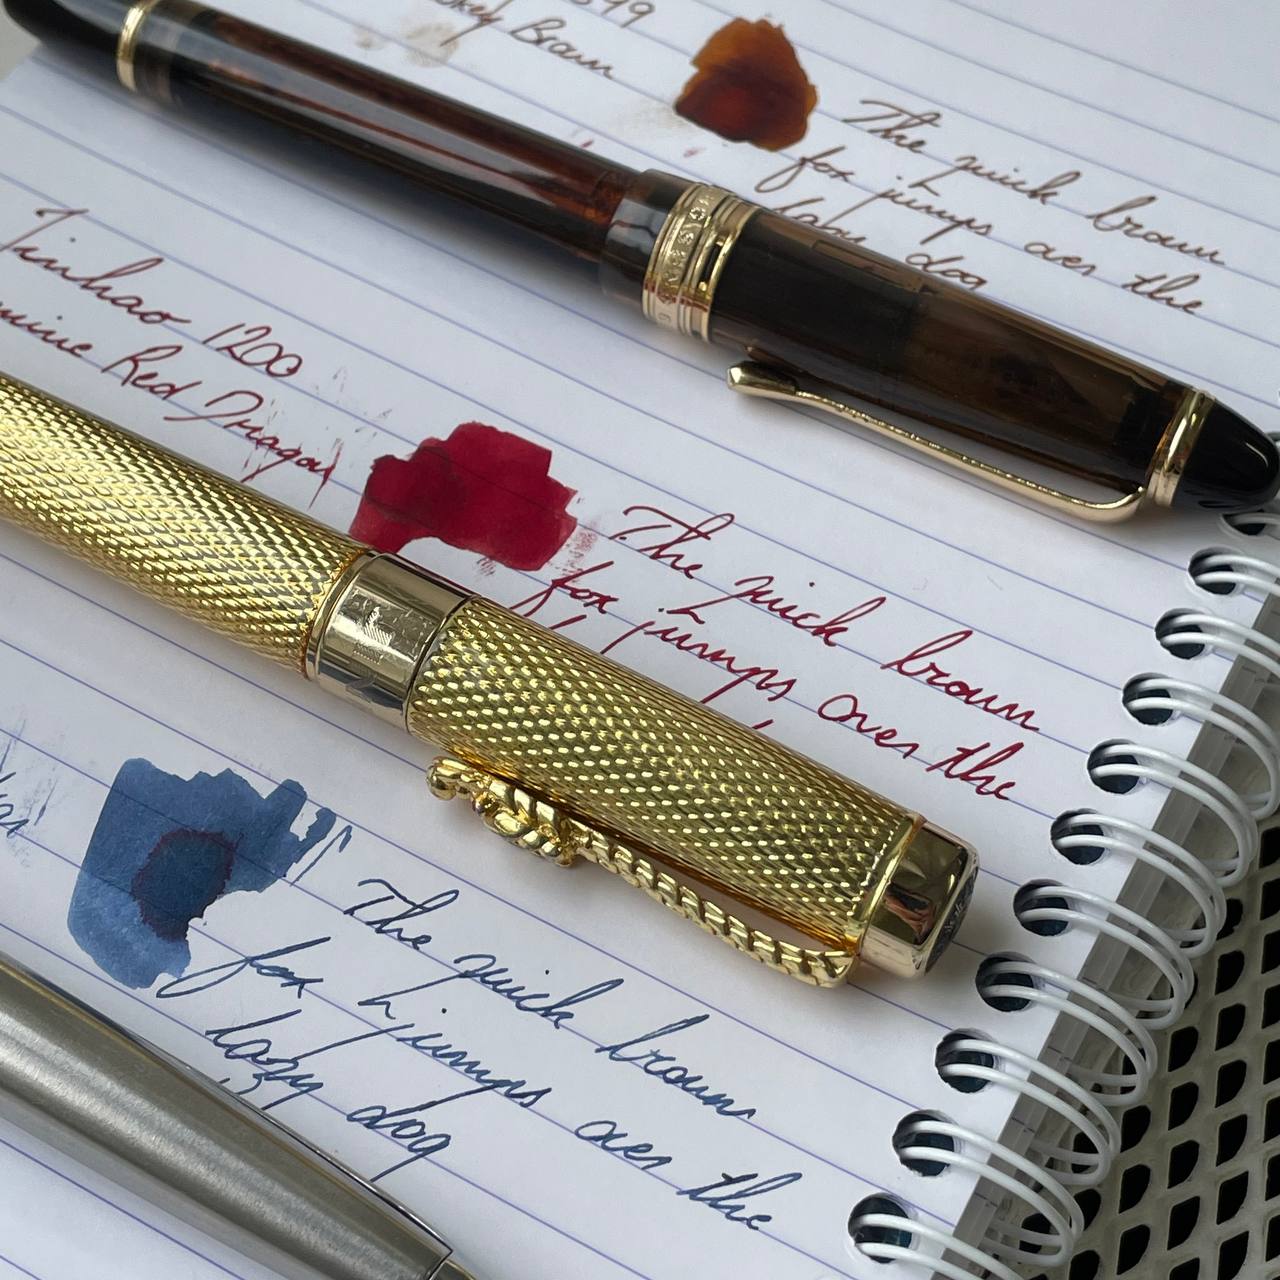 Brown
The quick brown
fox jumps over the
lazy dog
Jinhao 1200
Red Dragon
The quick brown
fox jumps over the
The quick brown
fox jumps over the
lazy dog